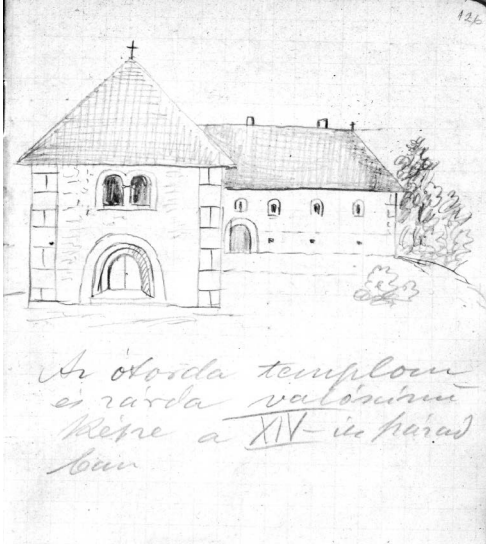 126
Az ótorda templom
és zárda valószinü
képe a XIV-ik század
ban